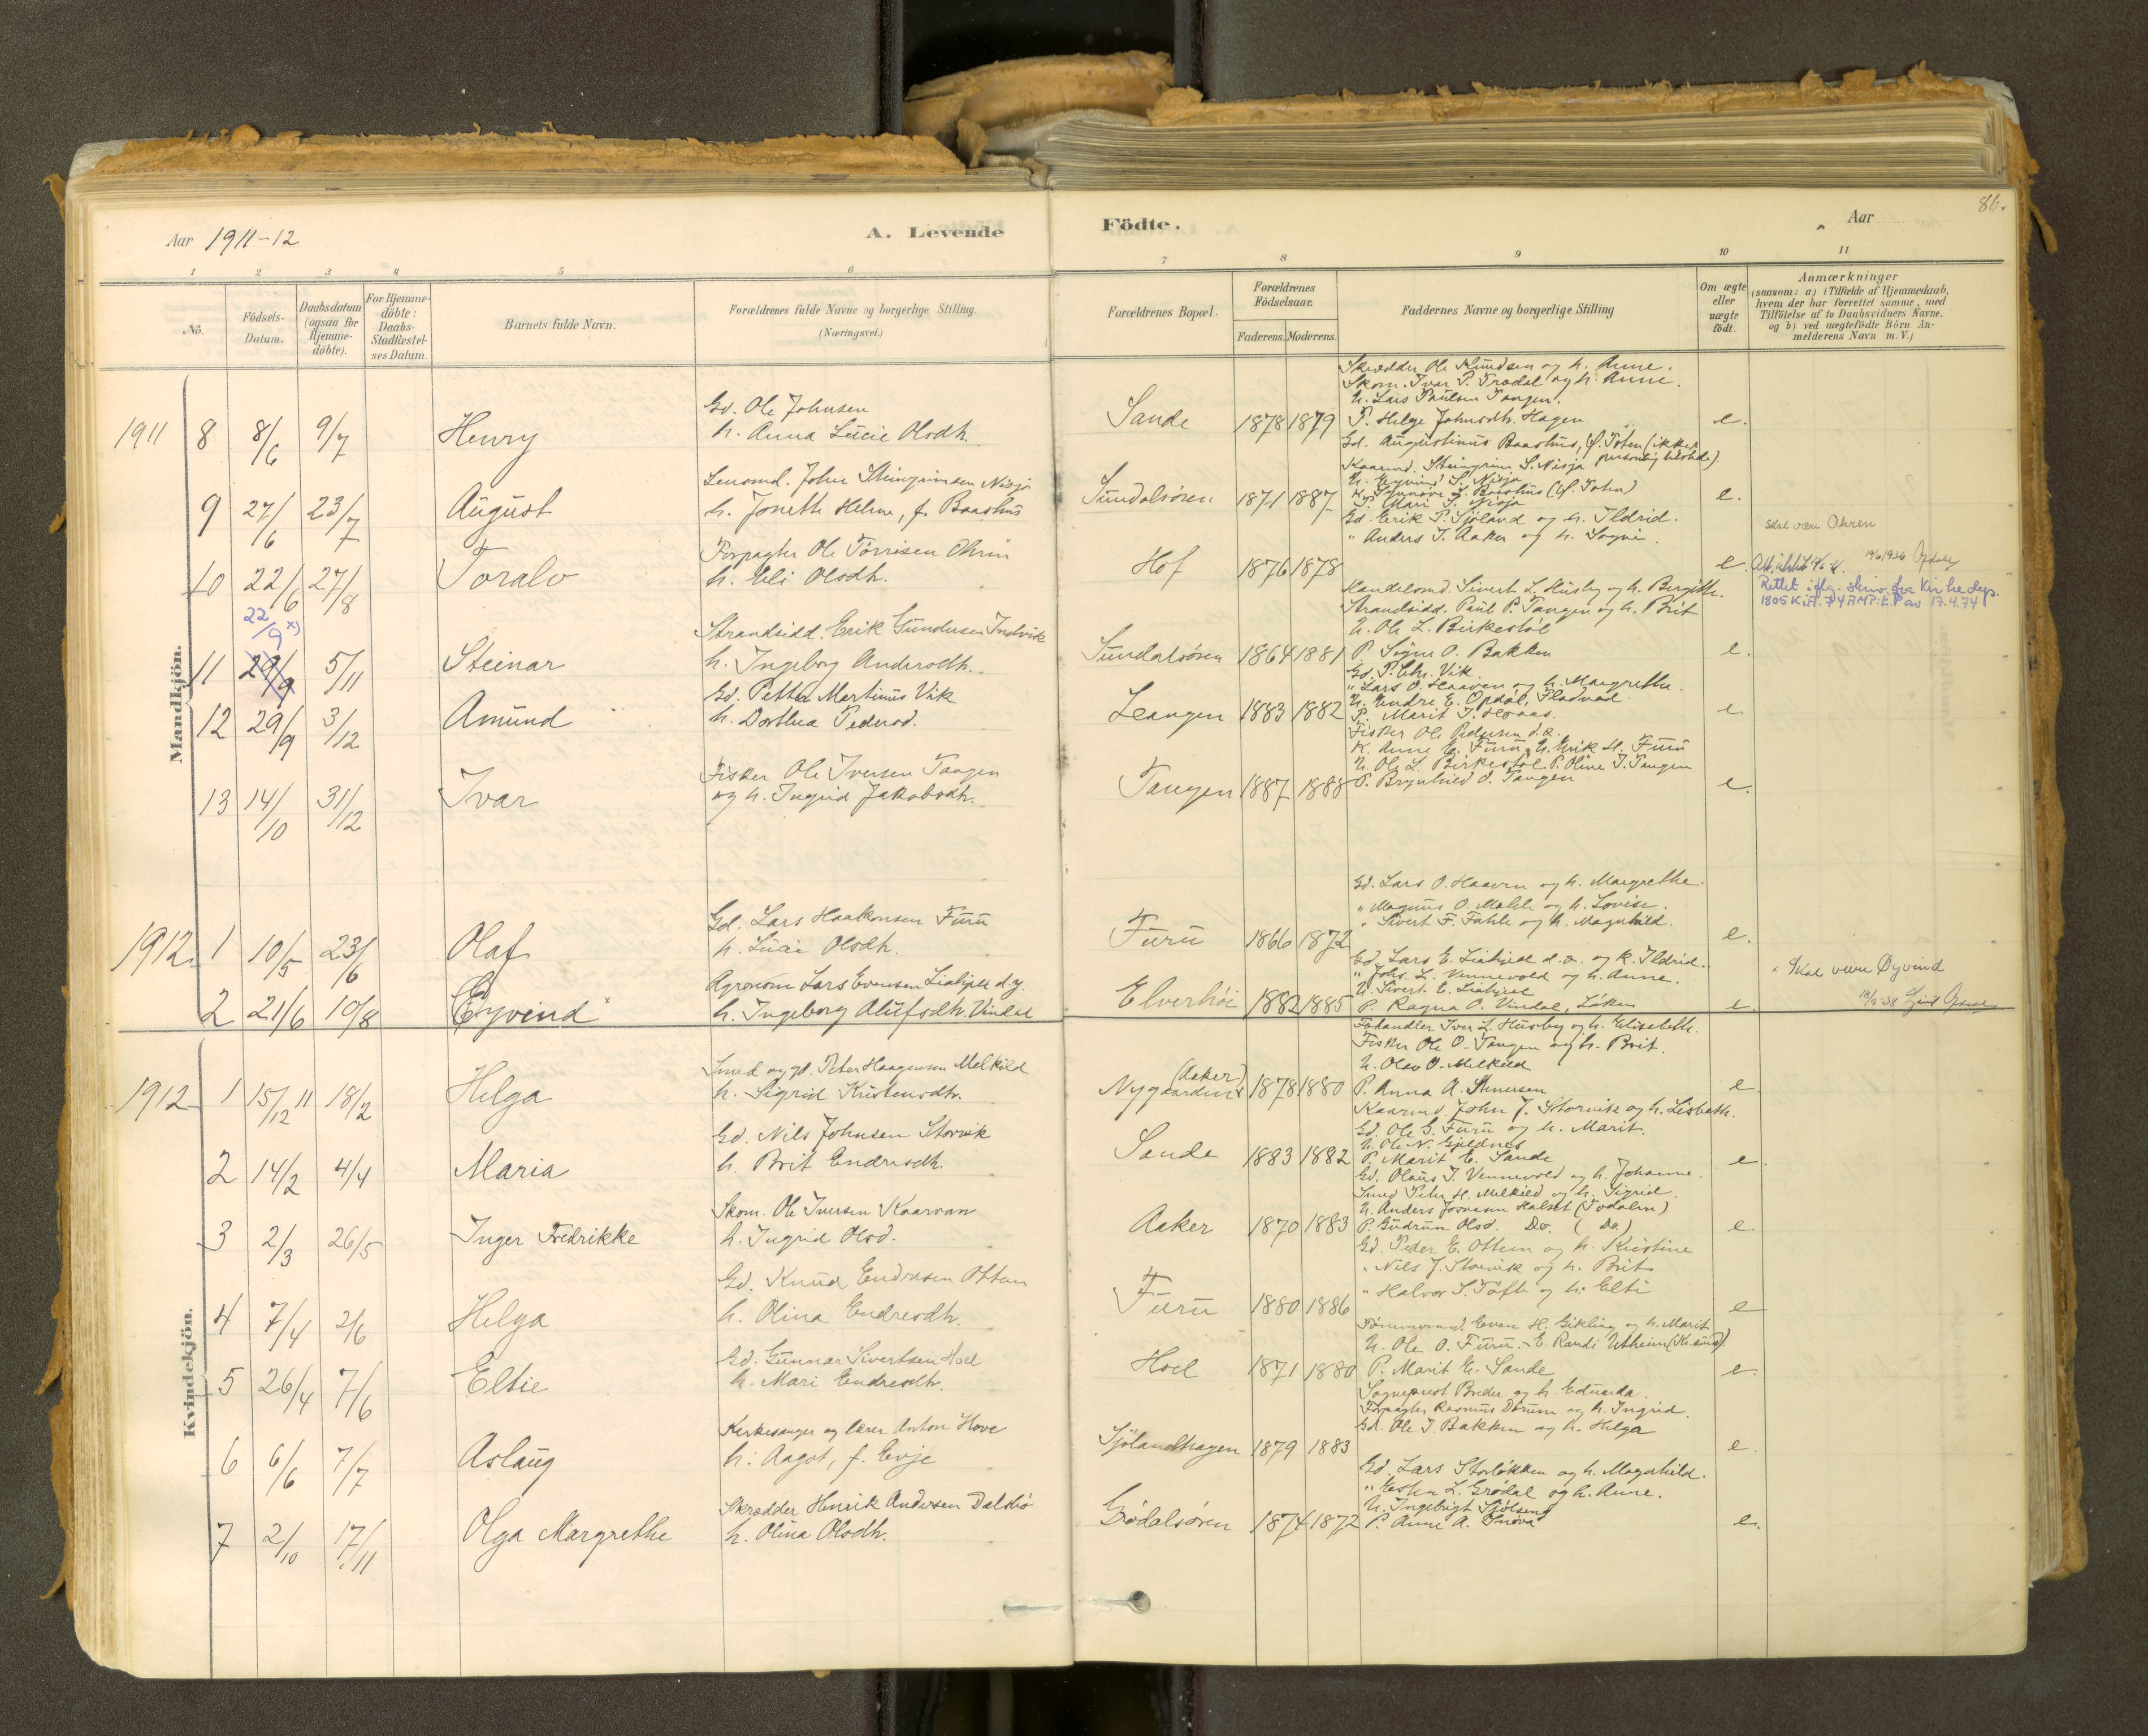 86.
Aar 1911-12
A. Levende
Födte.
Aar
1 2 3 4 5 6 7 8 9 10 11
No.
Födsels-Datum.
Daabsdatum (ogsaa for Hjemme-döbte).
For Hjemme-döbte: Daabs-Stadfæstel-ses Datum.
Barnets fulde Navn.
Forældrenes fulde Navne og borgerlige Stilling
(Næringsvei.)
Forældrenes Bopæl.
Forældrenes Födselsaar.
Faderens. Moderens.
Faddernes Navne og borgerlige Stilling
Om ægte eller uægte födt.
Anmærkninger
(saasom: a) i Tilfælde af Hjemmedaab,
hvem der har forrettet samme, med
Tilföielse af to Daabsvidners Navne.
og b) ved uægtefödte Börn An-
melderens Navn m. V.)
Mandkjön.
1911 8 8/6 9/7 Henry
Gd. Ole Johnsen
h. Anna Lucie Olsdh.
Sande 1878 1879
Skrædder Ole Knudsen og h. Anne.
Skom. Ivar P. Trædal og h. Anne.
U. Lars Paulsen Tangen.
P. Helge Johnsdh. Hagen
Gd. Augustinus Baashus, (ikke personlig tilstede).
e.
9 27/6 23/7 August
Lensmd. John Steingrimsen Nisja
h. Jonette Helene, f. Baashus
Sundalsören 1871 1887
Kaarmd. Steingrim S. Nisja
U. Eyvind S. Nisja
P. Mari S. Nisja
e.
10 22/6 27/8 Toralv
Forpagter Ole Törrisen Ohren
h. Eli Olsdh.
Hof 1876 1878
Gd. Erik P. Sjöland og h. Ildrid.
" Anders J. Aaker og h. Sogni.
e
skal være Ohren
19/6 1936
11 29/9 22/9 x) 5/11 Steinar
Strandsidd. Erik Gundersen Indvik
h. Ingeborg Andersdh.
Sundalsören 1864 1881
Handelsmd. Sivert L. Husby og h. Bergitte.
Strandsidd. Paul P. Tangen og h. Brit
U. Ole L. Birkestöl
P. Signe O. Bakken
e.
Rettet iflg. skriv fra Kirkedep.
1805 K.A. 74 AMP: E.P av 17.4.74
12 29/9 3/12 Amund
Gd. Petter Martinus Vik
h. Dorthea Pedersd.
Leangen 1883 1882
Gd. P. Chr. Vik.
" Lars O. Haaven og h. Margrethe.
U. Endre E. Opdöl, Fladvad
P. Marit J. Hoaas.
e
13 14/10 31/12 Ivar
Fisker Ole Iversen Tangen
og h. Ingrid Jakobsdh.
Tangen 1887 1888
Fisker Ole Pedersen d.æ.
K. Anne E. Furu, U. Erik H. Furu
U. Ole L. Birkestöl P. Oline I. Tangen
P. Brynhild O. Tangen
e.
1912 1 10/5 23/6 Olaf
Gd. Lars Haakonsen Furu
h. Lucie Olsdh.
Furu 1866 1872
Gd. Lars O. Haaven og h. Margrethe.
" Magnus O. Mæhle og h. Lovise.
" Sivert F. Fahle og h. Magnhild.
e.
2 21/6 10/8 Eyvind
Agronom Lars Evensen Liahjell d.y.
h. Ingeborg Olufsdh. Vindal
Elverhöi 1882 1885
Gd. Lars E. Liahjell d.æ. og k. Ildrid.
" Johs. L. Vennevold og h. Anne.
U. Sivert E. Liahjell
P. Ragna O. Vindal, Löken
e.
Skal være Øyvind
Kvindekjön.
1912 1 15/12 11 18/2 Helga
Smed og gd. Peter Haagensen Melkild
h. Sigrid Kristensdtr.
Nygaarden (Aaker) 1878 1880
Fehandler Iver L. Husby og h. Elisabeth.
Fisker Ole O. Tangen og h. Brit.
U. Olav O. Melkild
P. Anna A. Stenersen
e
2 14/2 4/4 Maria
Gd. Nils Johnsen Storvik
h. Brit Endresdh.
Sande 1883 1882
Kaarmd. John J. Storvik og h. Lisbeth.
Gd. Ole G. Furu og h. Marit.
U. Ole N. Gjeldnes
P. Marit E. Sande
e.
3 2/3 26/5 Inger Fredrikke
Skom. Ole Iversen Kaarvan
h. Ingrid Olsd.
Aaker 1870 1883
Gd. Olaus J. Vennevold og h. Johanne
Smed Peter H. Melkild og h. Sigrid.
U. Anders Halset (Todalen)
P. Gudrun Olsd. Do. (Do)
e.
4 7/4 2/6 Helga
Gd. Knud Endresen Ottem
h. Olina Endresdh.
Furu 1880 1886
Gd. Peder E. Ottem og h. Kristine
" Nils J. Storvik og h. Brit
" Halvor S. Töfte og h. Elti
e
5 26/4 7/6 Eltie
Gd. Gunnar Sivertsen Hoel
h. Mari Endresdtr.
Hoel 1871 1880
Tömmermd. Even H. Gikling og h. Marit
U. Ole O. Furu. E. Randi Utheim (Kr.sund).
P. Marit E. Sande
e.
6 6/6 7/7 Aslaug
Kirkesanger og lærer Anton Hove
h. Aagot, f. Evje
Sjölandhagen 1879 1883
Sogneprest Breder og h. Eduarda.
Forpagter Rasmus Dörum og h. Ingrid.
Gd. Ole I. Bakken og h. Helga
e.
7 2/10 17/11 Olga Margrethe
Skrædder Henrik Andersen Dalsbö
h. Olina Olsdh.
Grödalsören 1874 1872
Gd. Lars Storlökken og h. Magnhild.
" Esten L. Grödal og h. Anne.
U. Ingebrigt Sjölseng
P. Anne A. Snöva
e.